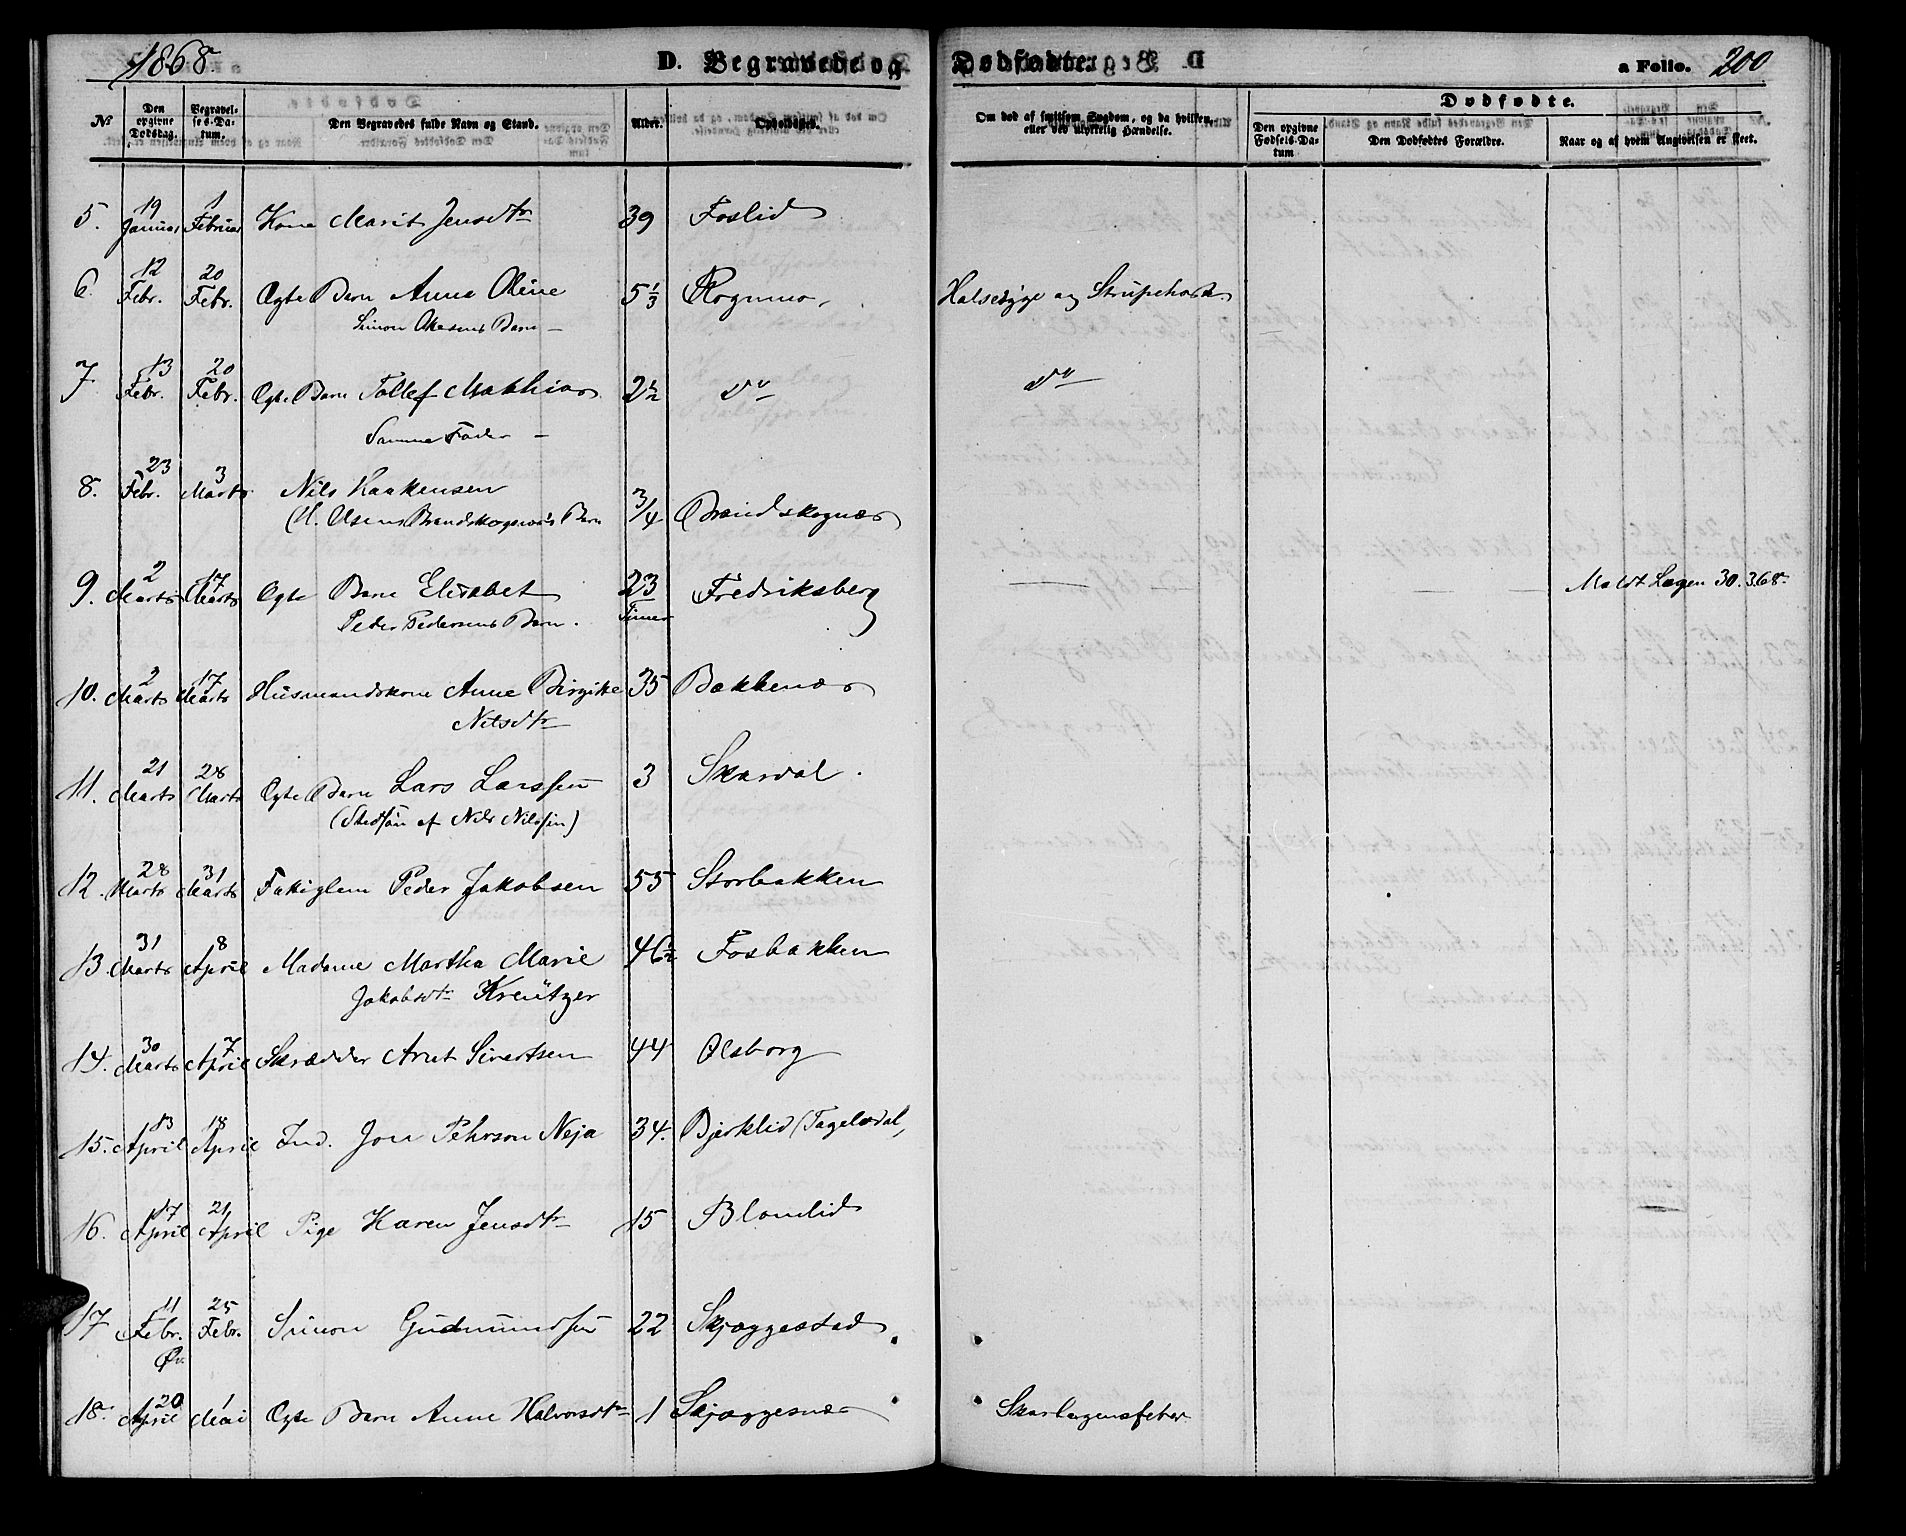 1868.
D. Begravede og Dødfødte.
a Folio. 200
No
Den opgivne Dødsdag.
Begravelses-Datum.
Den Begravedes fulde Navn og Stand.
Alder.
Opholdssted.
Om død af smitsom Sygdom, og da hvilken, eller ved ulykkelig Hændelse.
Dødfødte.
Den opgivne Fødsels-Datum
Den Dødfødtes Forældre.
Naar og af hvem Angivelsen er skeet.
5. 19 Januar 1 Februar Kone Marit Jensdtr 39 Foslid
6. 12 Febr. 20 Febr. Ægte Barn Anna Oline 5 1/3 Rognmo, Halsesyge og Strupehoste
Simon Olesens Barn —
7 13 Febr. 20 Febr. Ægte Barn Tollef Mathias 2 1/2 do do
Samme Fader —
8. 23 Febr. 3 Marts Nils Haakensen 3/4 Brandskognæs
(H. Olsens Brandskognæs Barn
9. 2 Marts 17 Marts Ægte Barn Elisabet 23 Timer Fredriksberg — — — — Meldt Lægen 30.3.68.
Peder Pedersens Barn.
10. 2 Marts 17 Marts Husmandskone Anne Birgitte 35 Bakkenæs
Nilsdtr
11. 21 Marts 28 Marts Ægte Barn Lars Larssen 3 Skardal.
(Stedsøn af Nils Nilssen)
12. 28 Marts 31 Marts Fattiglem Peder Jakobsen 55 Storbakken
13 31 Marts 8 April Madame Martha Marie 46 1/2 Fosbakken
Jakobsdtr Kreutzer
14. 30 Marts 7 April Skrædder Arnt Sivertsen 44 Olsborg
15. 13 April 18 April Ind. Jon Pehrson Neja 34. Bjerklid (Tagelvdal,
16. 17 April 21 April Pige Karen Jensdtr 15 Blomlid
17 11 Febr. 25 Febr. Simon Gudmundsen 22 Skjæggestad
18. 20 April 1 Mai Ægte Barn Anne Halvorsdtr 1 Skjæggesnæs Skarlagensfeber